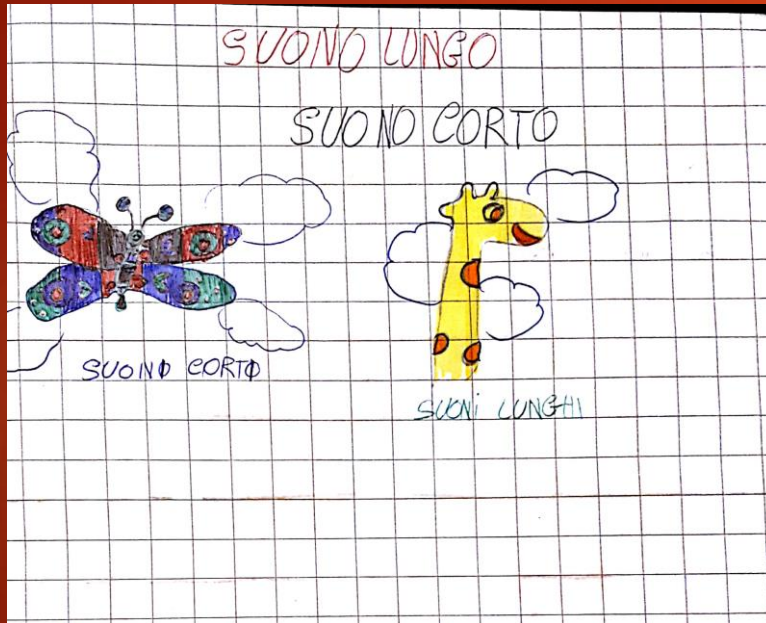 SUONO LUNGO
SUONO CORTO
SUONO CORTO
SUONI LUNGHI